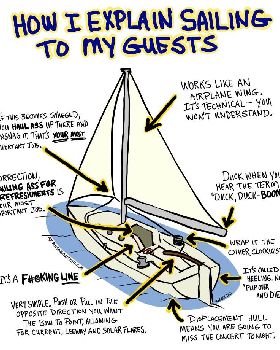 HOW I EXPLAIN SAILING
TO MY GUESTS
WORKS LIKE AN
AIRPLANE WING.
IT'S TECHNICAL - YOU
WON'T UNDERSTAND.
IF THIS BECOMES
YOU HAUL ASS UP THERE AND
IT. THAT'S YOUR MOST
JOB.
CORRECTION,
HAULING ASS FOR
REFRESHMENTS IS
YOUR MOST
IMPORTANT JOB.
DUCK WHEN YOU
HEAR THE TERM,
"DUCK, DUCK-BOOM"
WRAP IT THE
OTHER CLOCKWISE
IT'S CALLED
HEELING, NOT
IT'S A F#©KING LINE
VERY SIMPLE, PUSH OR PULL IN THE
OPPOSITE DIRECTION YOU WANT
THE BOW TO POINT, ALLOWING
FOR CURRENT, LEEWAY AND SOLAR FLARES.
DISPLACEMENT HULL
MEANS YOU ARE GOING TO
MISS THE CONCERT TONIGHT.